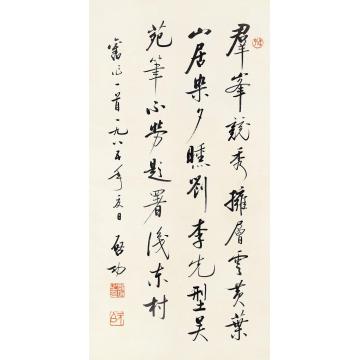 群峯競秀擁層雲黄葉
山居樂夕曛劉李先型吴
苑筆不勞題署淺東村
舊作一首一九八五年夏日 啟功